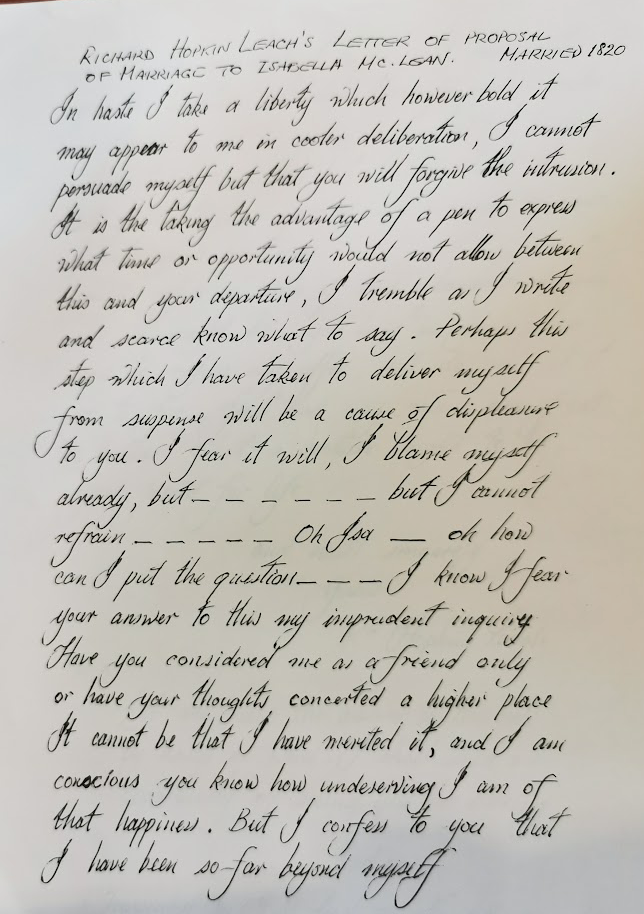 RICHARD HOPKIN LEACH'S LETTER OF PROPOSAL
OF MARRIAGE TO ISABELLA MC. LEAN. MARRIED 1820
In haste I take a liberty which however bold it
may appear to me in cooler deliberation, I cannot
persuade myself but that you will forgive the intrusion.
It is the taking the advantage of a pen to express
what time or opportunity would not allow between
this and your departure, I tremble as I write
and scarce know what to say. Perhaps this
step which I have taken to deliver myself
from suspense will be a cause of displeasure
to you. I fear it will, I blame myself
already, but – – – – – – – but I cannot
refrain – – – – – Oh Isa — oh how
can I put the question – – – – I know I fear
your answer to this my imprudent inquiry
Have you considered me as a friend only
or have your thoughts concerted a higher place
It cannot be that I have merited it, and I am
conscious you know how undeserving I am of
that happiness. But I confess to you that
I have been so far beyond myself